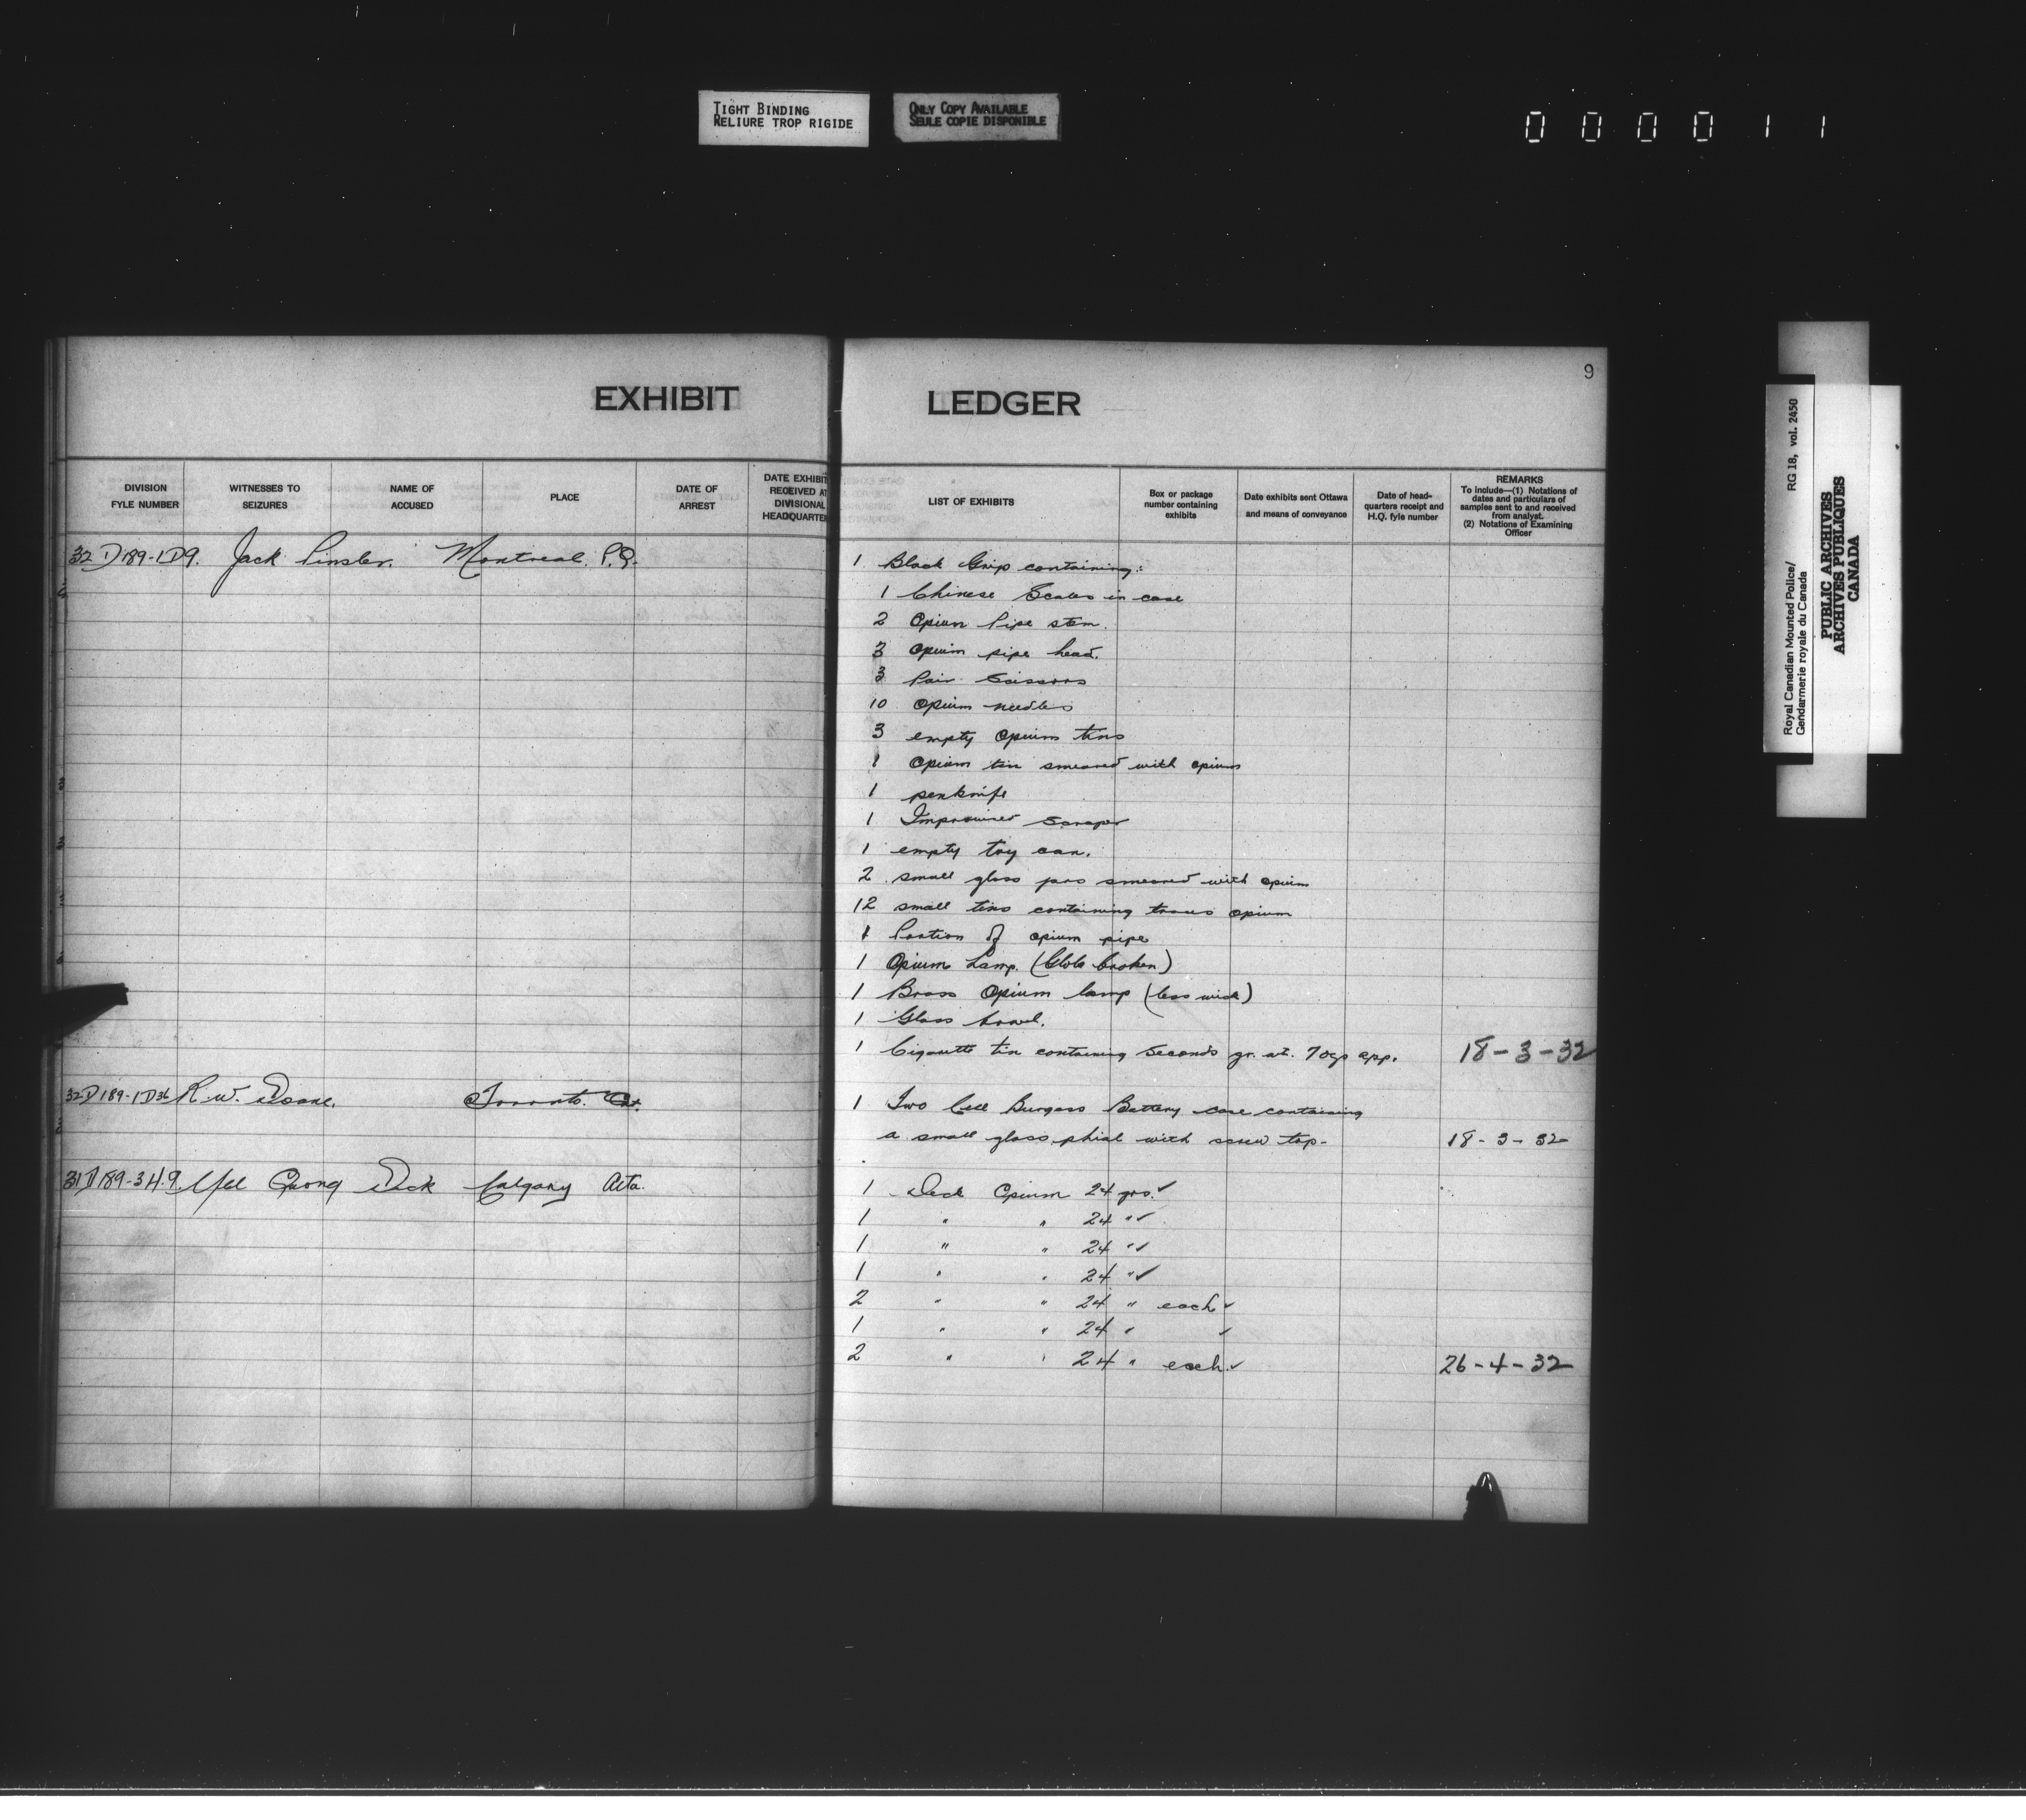 TIGHT BINDING
RELIURE TROP RIGIDE
ONLY COPY AVAILABLE
SEULE COPIE DISPONIBLE
000011
9
EXHIBIT LEDGER
DIVISION FYLE NUMBER
WITNESSES TO SEIZURES
NAME OF ACCUSED
PLACE
DATE OF ARREST
DATE EXHIBIT RECEIVED AT DIVISIONAL HEADQUARTER
LIST OF EXHIBITS
Box or package number containing exhibits
Date exhibits sent Ottawa and means of conveyance
Date of head-quarters receipt and H.Q. fyle number
REMARKS
To include—(1) Notations of dates and particulars of samples sent to and received from analyst.
(2) Notations of Examining Officer
32 D 189-1 D 9. Jack Pinsler. Montreal. P.Q.
1 Black Grip containing:
1 Chinese Scales in case
2 Opium Pipe stem.
3 Opium pipe head.
3 Pair Scissors
10 Opium needles
3 empty Opium tins
1 Opium tin smeared with opium
1 penknife
1 Improvised Scraper
1 empty toy can.
2 small glass jars smeared with opium
12 small tins containing traces opium
1 Portion of opium pipe
1 Opium Lamp. (Globe broken)
1 Brass Opium lamp (less wick)
1 Glass bowl.
1 Cigarette tin containing Seconds gr. wt. 70gs app. 18-3-32
32 D 189-1 D 36 R.W. Doane. Toronto. Ont.
1 Two Cell Burgess Battery case containing
a small glass phial with screw top- 18-3-32
31 D 189-3 H.9. Mel Quong Dick Calgary Alta.
1 Deck Opium 24 grs. ✓
1 " " 24 " ✓
1 " " 24 " ✓
1 " " 24 " ✓
2 " " 24 " each ✓
1 " " 24 " ✓
2 " " 24 " each ✓ 26-4-32
Royal Canadian Mounted Police/
Gendarmerie royale du Canada
RG 18, vol. 2450
PUBLIC ARCHIVES
ARCHIVES PUBLIQUES
CANADA